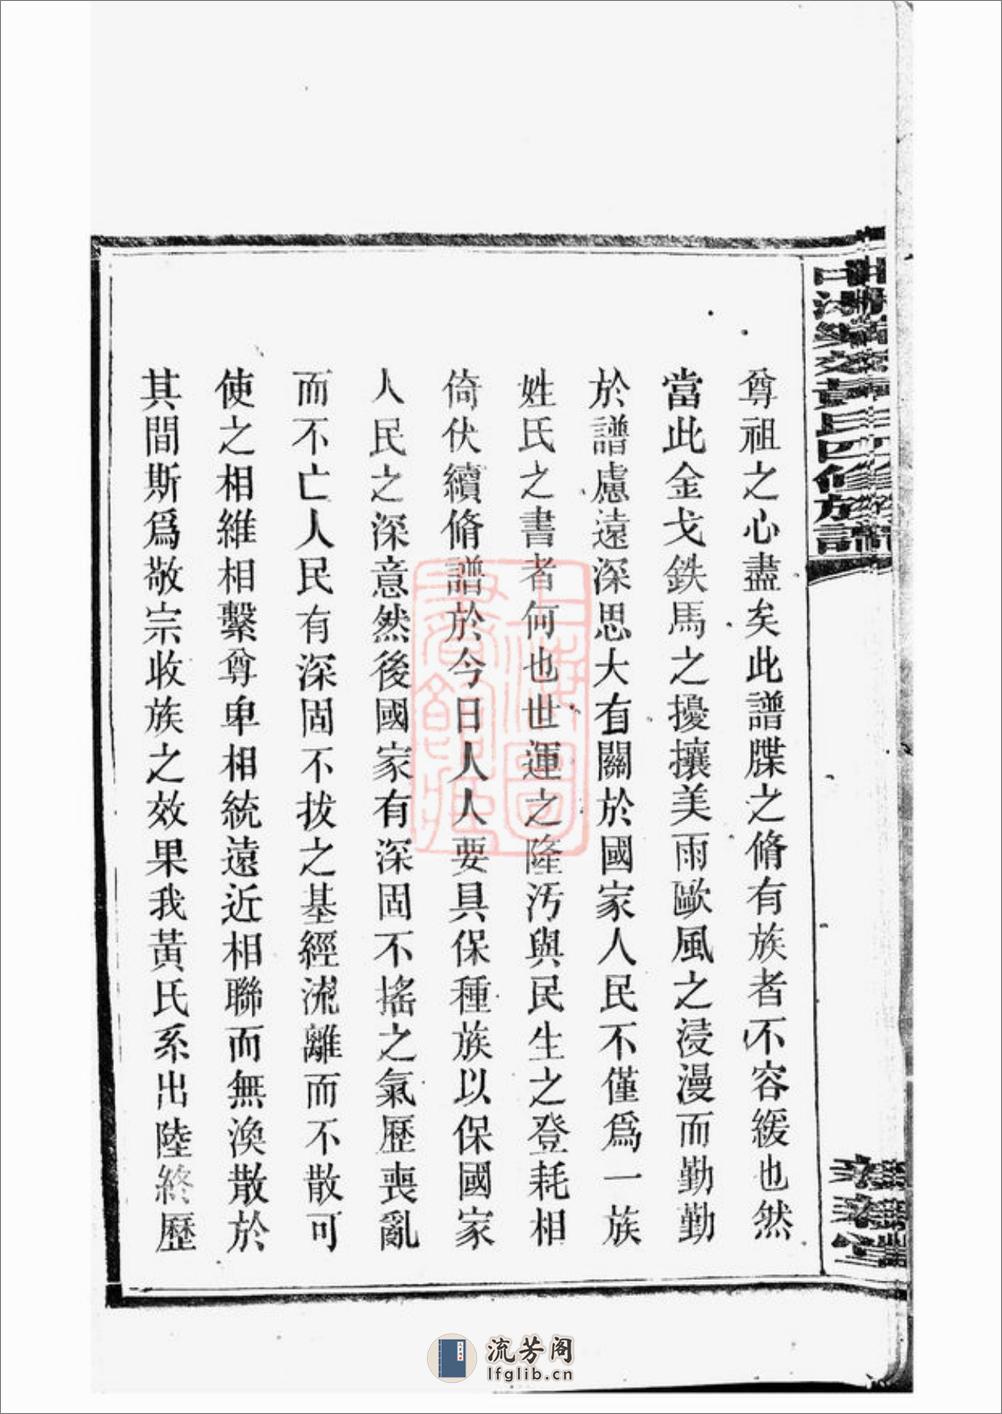 尊祖之心盡矣此譜牒之脩有族者不容緩也然
當此金戈鉄馬之擾攘美雨歐風之浸漫而勤勤
於譜慮遠深思大有關於國家人民不僅爲一族
姓氏之書者何也世運之隆汚與民生之登耗相
倚伏續脩譜於今日人人要具保種族以保國家
人民之深意然後國家有深固不搖之氣歷喪亂
而不亡人民有深固不拔之基經流離而不散可
使之相維相繫尊卑相統遠近相聯而無渙散於
其間斯爲敬宗收族之效果我黃氏系出陸終歷
上海圖
書館藏
流芳阁
lfglib.cn